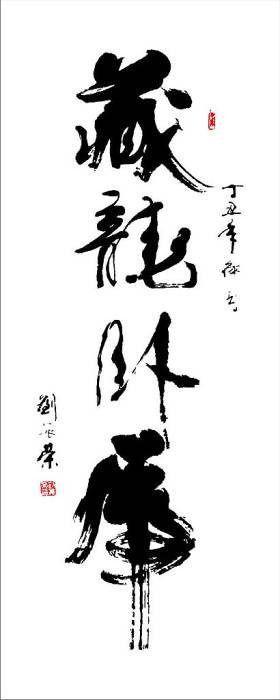 藏龍卧虎
丁丑年秋月
劉榮